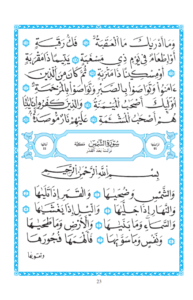 وَمَآ أَدْرَىٰكَ مَا ٱلْعَقَبَةُ ۝ فَكُّ رَقَبَةٍ ۝
أَوْ إِطْعَٰمٌ فِى يَوْمٍ ذِى مَسْغَبَةٍ ۝ يَتِيمًا ذَا مَقْرَبَةٍ
۝ أَوْ مِسْكِينًا ذَا مَتْرَبَةٍ ۝ ثُمَّ كَانَ مِنَ ٱلَّذِينَ
ءَامَنُوا۟ وَتَوَاصَوْا۟ بِٱلصَّبْرِ وَتَوَاصَوْا۟ بِٱلْمَرْحَمَةِ ۝
أُو۟لَٰٓئِكَ أَصْحَٰبُ ٱلْمَيْمَنَةِ ۝ وَٱلَّذِينَ كَفَرُوا۟ بِـَٔايَٰتِنَا
هُمْ أَصْحَٰبُ ٱلْمَشْـَٔمَةِ ۝ عَلَيْهِمْ نَارٌ مُّؤْصَدَةٌۢ ۝
سُورَةُ الشَّمْسِ مكية
نزلت بعد القدر
بِسْمِ ٱللَّهِ ٱلرَّحْمَٰنِ ٱلرَّحِيمِ
وَٱلشَّمْسِ وَضُحَىٰهَا ۝ وَٱلْقَمَرِ إِذَا تَلَىٰهَا ۝
وَٱلنَّهَارِ إِذَا جَلَّىٰهَا ۝ وَٱلَّيْلِ إِذَا يَغْشَىٰهَا
۝ وَٱلسَّمَآءِ وَمَا بَنَىٰهَا ۝ وَٱلْأَرْضِ وَمَا طَحَىٰهَا
۝ وَنَفْسٍ وَمَا سَوَّىٰهَا ۝ فَأَلْهَمَهَا فُجُورَهَا
وَتَقْوَىٰهَا
23